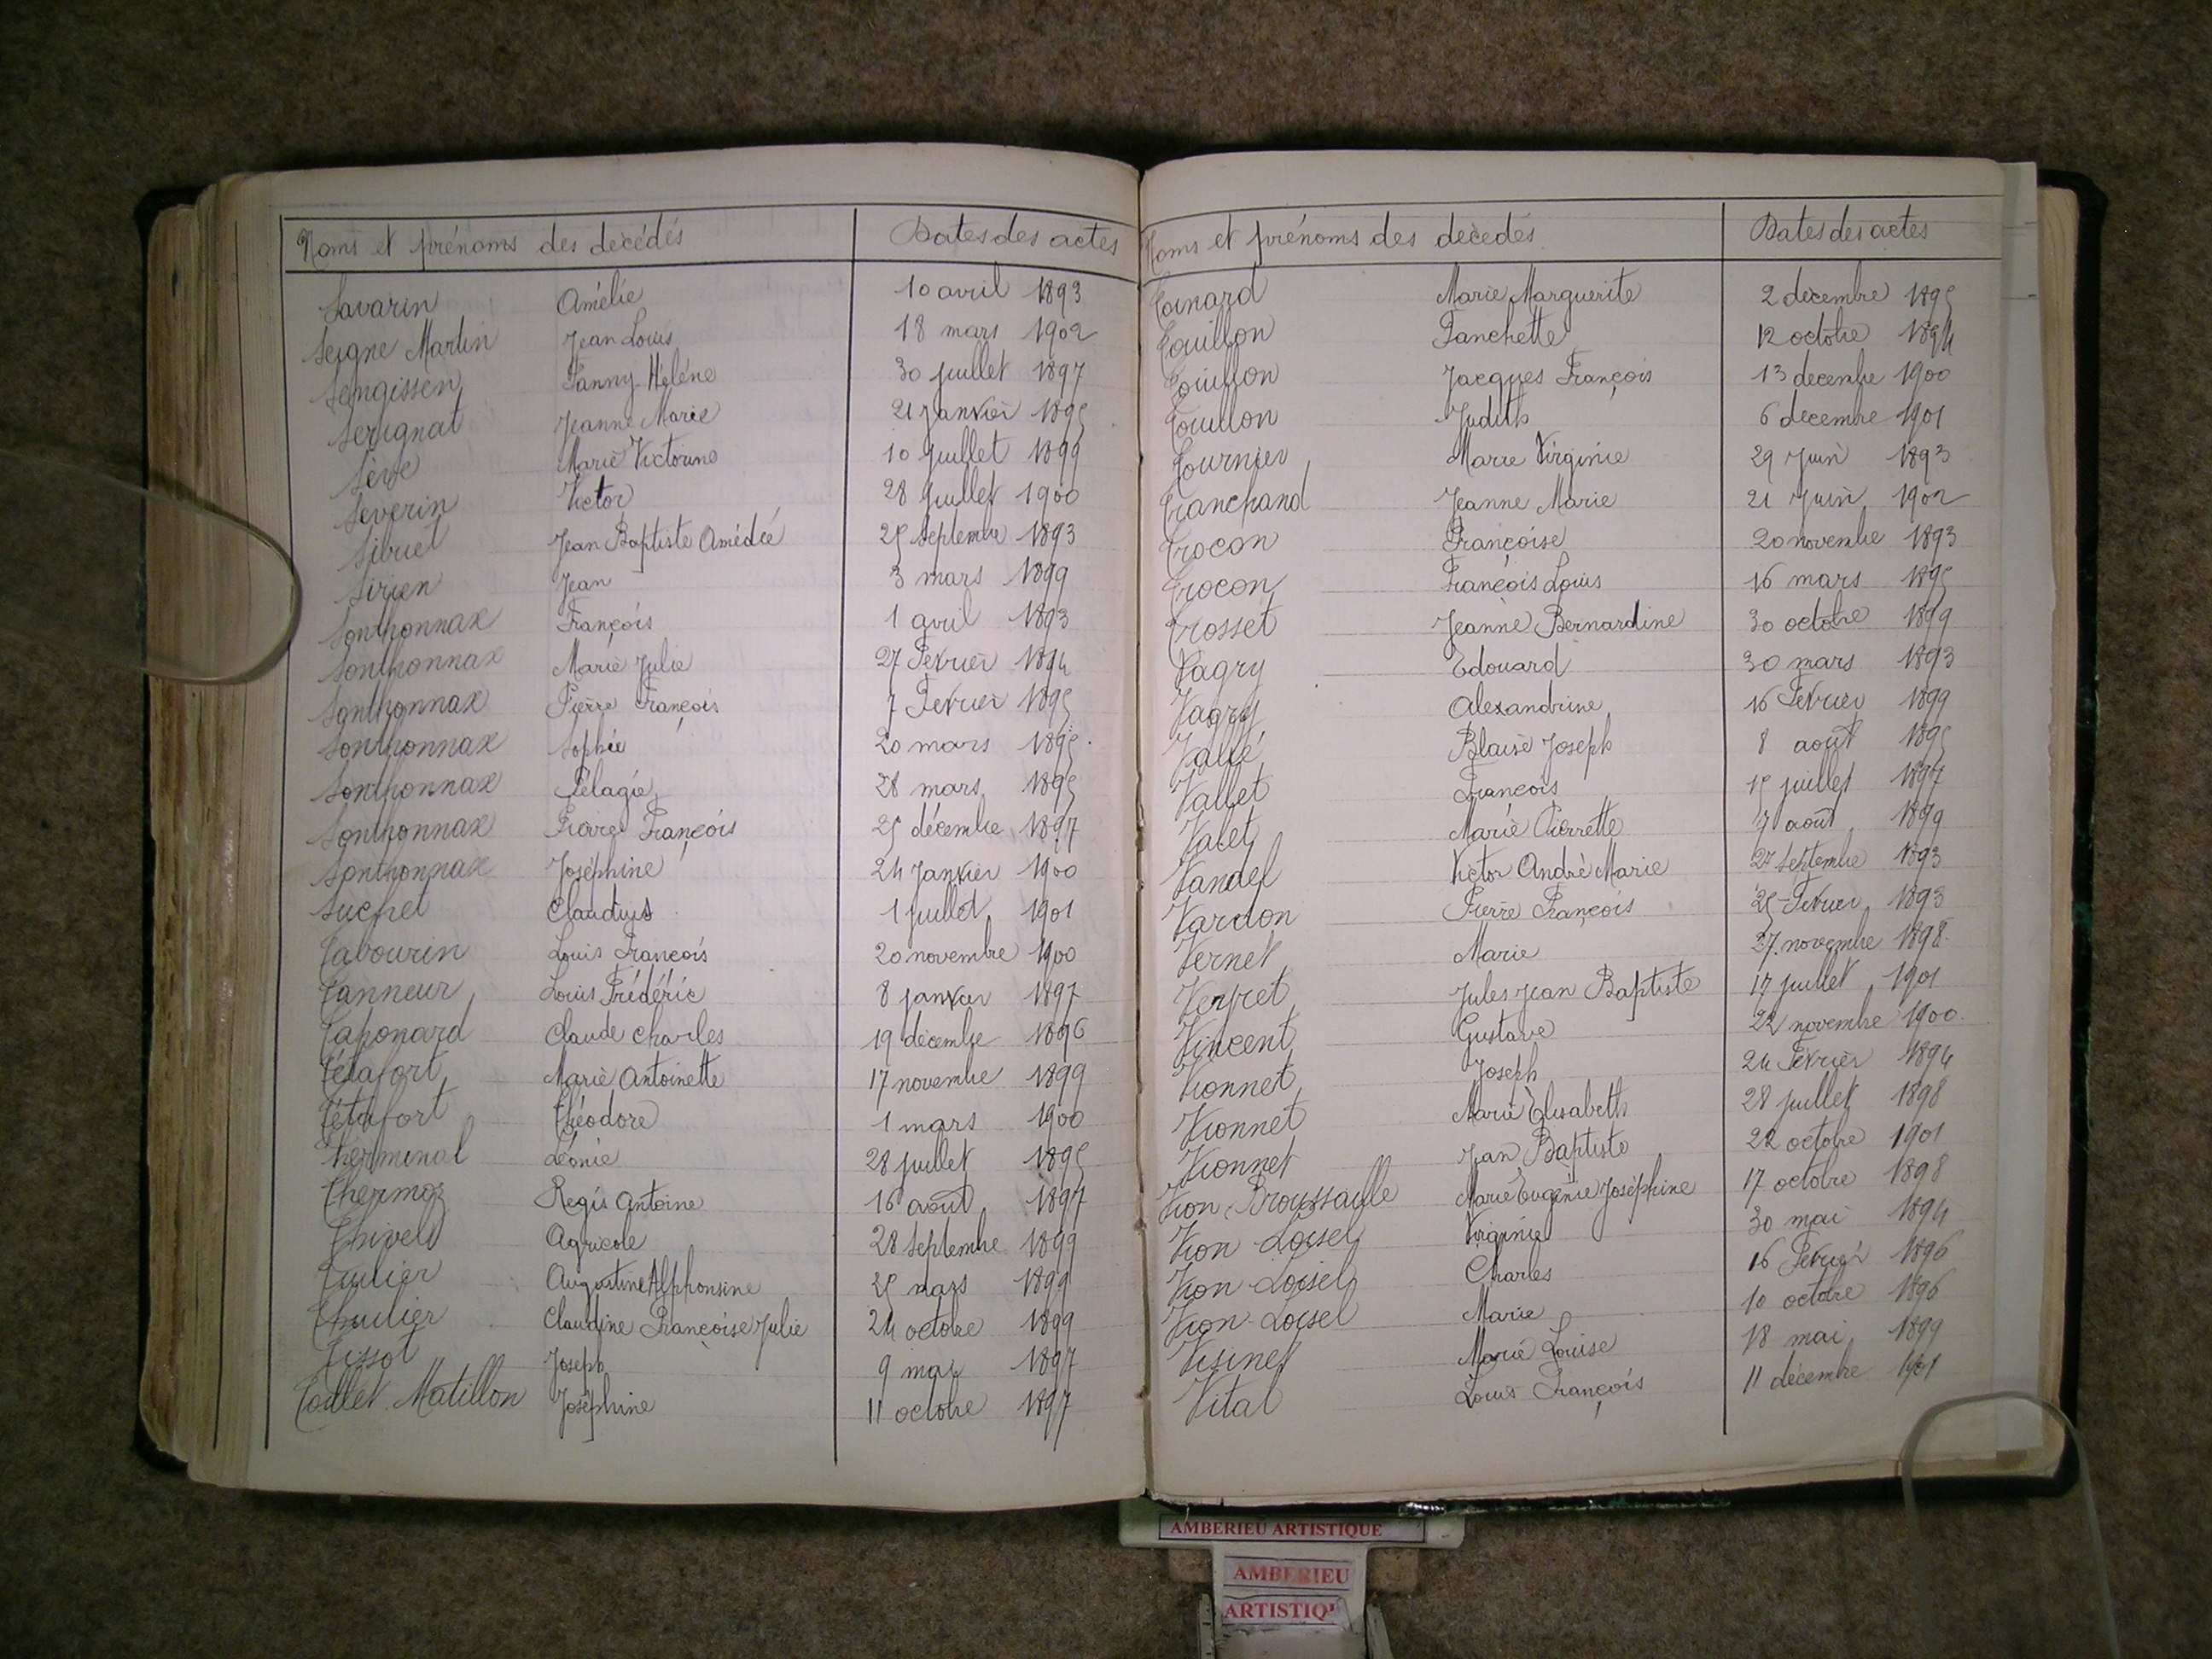 Noms et prénoms des décédés Dates des actes
Savarin Amélie 10 avril 1893
Seigne Martin Jean Louis 18 mars 1902
Sengissen Fanny Hélène 30 juillet 1897
Serignat Jeanne Marie 21 janvier 1895
Sève Marie Victorine 10 juillet 1899
Severin Victor 28 juillet 1900
Sibuet Jean Baptiste Amédée 25 septembre 1893
Sirien Jean 3 mars 1899
Sonthonnax François 1 avril 1893
Sonthonnax Marie Julie 27 Février 1894
Sonthonnax Pierre François 7 Février 1895
Sonthonnax Sophie 20 mars 1895
Sonthonnax Pélagie 28 mars 1895
Sonthonnax Pierre François 25 décembre 1897
Sonthonnax Joséphine 24 janvier 1900
Suchet Claudius 1 juillet 1901
Tabourin Louis François 20 novembre 1900
Tanneur Louis Frédéric 8 janvier 1897
Taponard Claude Charles 19 décembre 1896
Tétafort Marie Antoinette 17 novembre 1899
Tétafort Théodore 1 mars 1900
Théminal Léonie 28 juillet 1895
Thermoz Regis Antoine 16 août 1897
Thivel Agricole 28 septembre 1899
Tulier Augustine Alphonsine 25 mars 1899
Thulier Claudine Françoise Julie 24 octobre 1899
Tissot Joseph 9 mai 1897
Tollet Matillon Joséphine 11 octobre 1897
Noms et prénoms des décédés Dates des actes
Toinard Marie Marguerite 2 décembre 1895
Touillon Fanchette 12 octobre 1894
Touillon Jacques François 13 décembre 1900
Touillon Judith 6 decembre 1901
Tournier Marie Virginie 29 juin 1893
Tranchand Jeanne Marie 21 juin 1902
Trocon Françoise 20 novembre 1893
Trocon François Louis 16 mars 1895
Trosset Jeanne Bernardine 30 octobre 1899
Vagry Edouard 30 mars 1893
Vagry Alexandrine 16 Février 1899
Vallé Blaise Joseph 8 août 1895
Vallet François 15 juillet 1897
Valet Marie Pierrette 7 août 1899
Vandel Victor André Marie 27 septembre 1893
Vardon Pierre François 25 Février 1893
Vernet Marie 27 novembre 1898
Veyret Jules Jean Baptiste 17 juillet 1901
Vincent Gustave 22 novembre 1900
Vionnet Joseph 24 Février 1894
Vionnet Marie Elisabeth 28 juillet 1898
Vionnet Jean Baptiste 22 octobre 1901
Vion Broussaille Marie Eugénie Joséphine 17 octobre 1898
Vion Loisel Virginie 30 mai 1894
Vion Loisel Charles 16 Février 1896
Vion Loisel Marie 10 octobre 1896
Visinet Marie Louise 18 mai 1899
Vital Louis François 11 décembre 1901
AMBERIEU ARTISTIQUE
AMBERIEU
ARTISTIQU